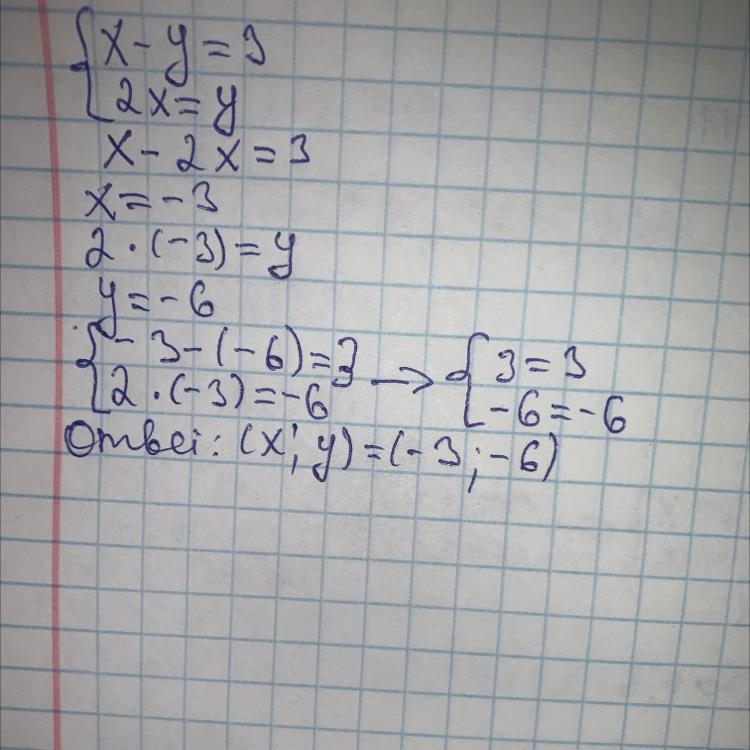 { x - y = 3
2x = y
x - 2x = 3
x = -3
2 · (-3) = y
y = -6
{ -3 - (-6) = 3
2 · (-3) = -6 → { 3 = 3
-6 = -6
Ответ: (x; y) = (-3; -6)